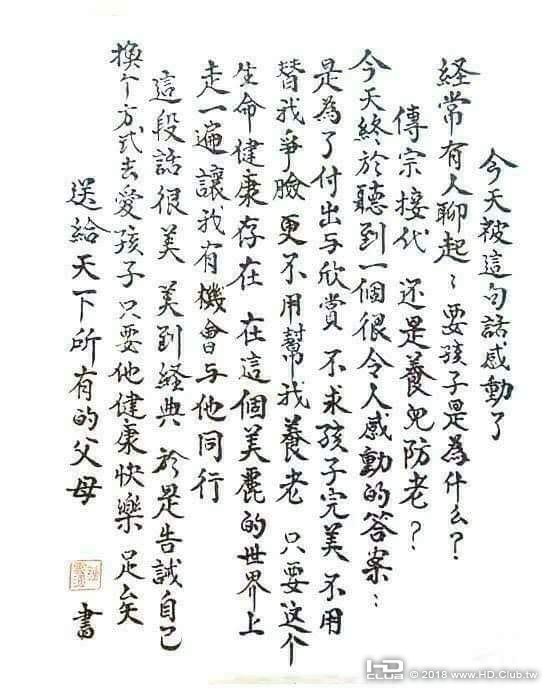 今天被這句話感動了
経常有人聊起：要孩子是為什么？
傳宗接代 还是養兒防老？
今天終於聽到一個很令人感動的答案：
是為了付出与欣賞 不求孩子完美 不用
替我爭臉 更不用幫我養老 只要这个
生命健康存在 在這個美麗的世界上
走一遍 讓我有機會与他同行
這段話很美 美到経典 於是告誡自己
換个方式去愛孩子 只要他健康快樂 足矣
送給天下所有的父母
書
HD CLUB © 2018 www.HD.Club.tw